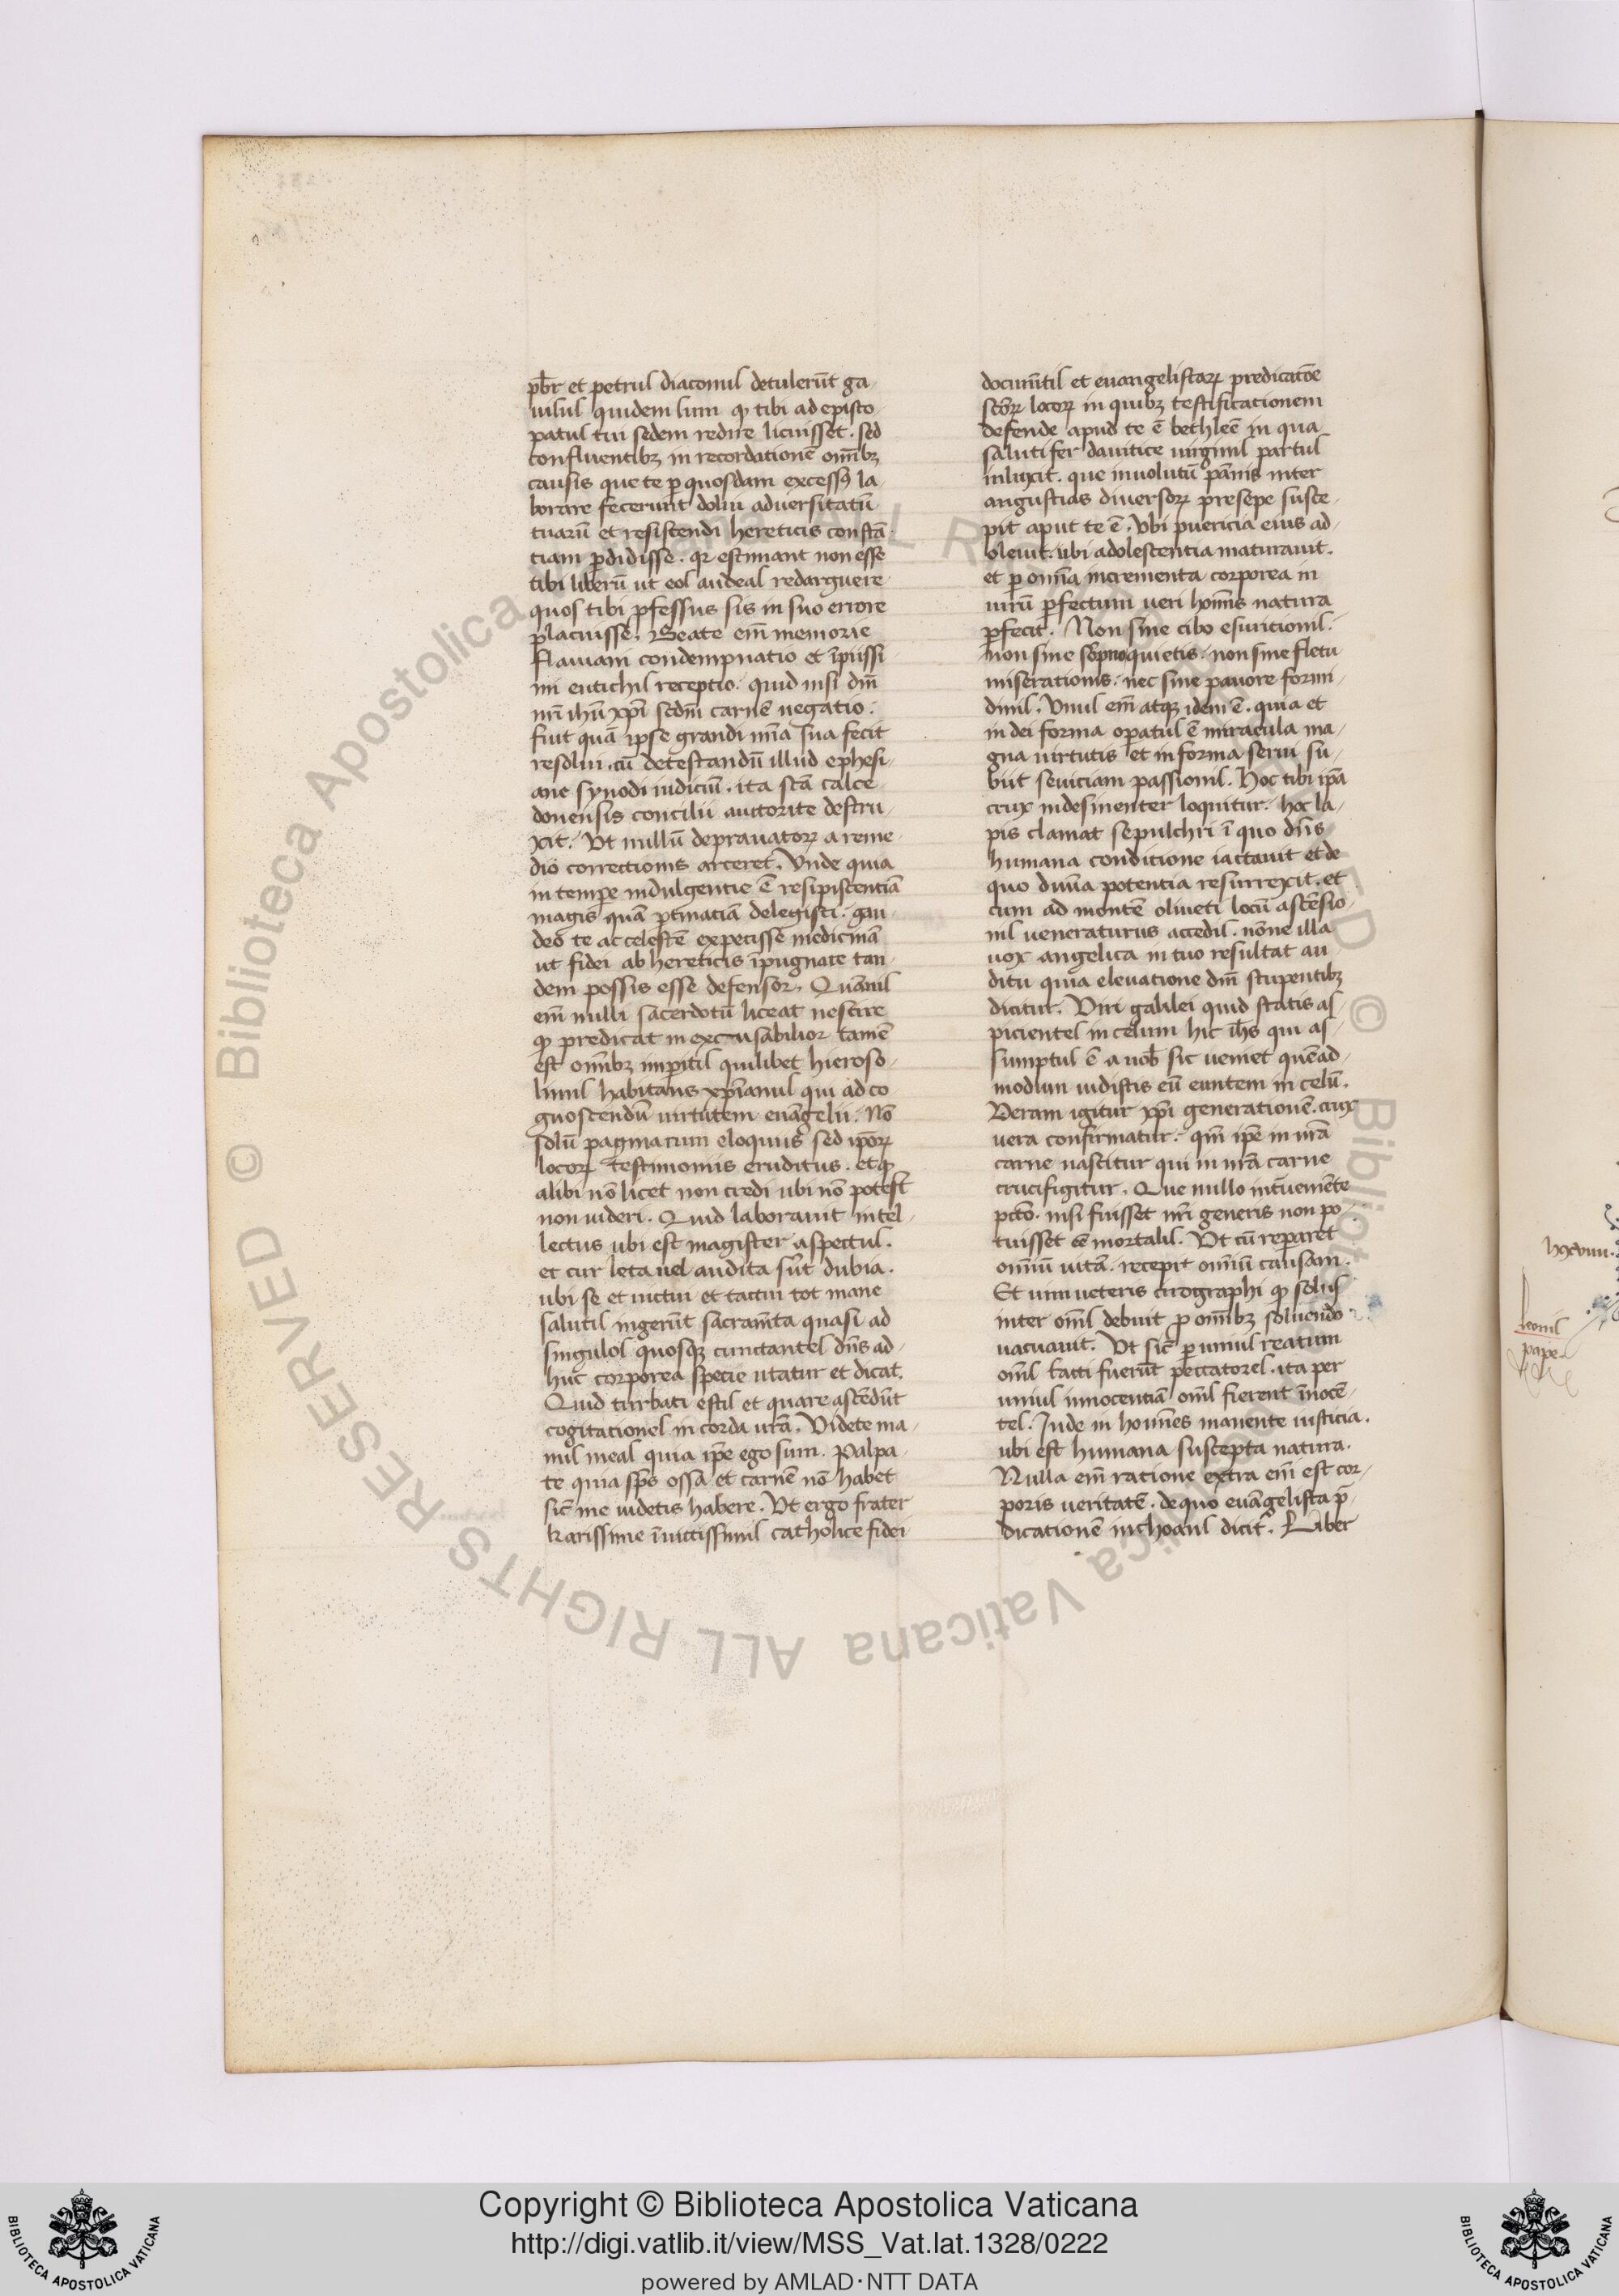 pbr̄ et petrus diaconus detulerūt ga-
uisus quidem sum ꝙ tibi ad episco-
patus tui sedem redire licuisset. sed
confluentibꝫ in recordationē om̄ibꝫ
causis que te ꝑ quosdam excessꝰ la-
borare fecerunt dolui aduersitatū
tuarū et resistendi hereticis constā-
tiam ꝑdidisse. qꝛ estimant non esse
tibi liberū ut eos audeas redarguere
quos tibi ꝓfessus sis in suo errore
placuisse. Beate em̄ memorie
flauiani condempnatio et īpiissi-
mi eutichis receptio. quid nisi dn̄i
nr̄i ihū xp̄i scdm̄ carnē negatio.
fuit quā ipse grandi mīa sua fecit
resolui. cū detestandū illud ephesi-
ane synodi iudiciū. ita scā calce-
donensis concilii auctorite destru-
xit. Vt nullū deprauatoꝝ a reme-
dio correctionis arceret. Vnde quia
in tempe indulgentie ē resipiscentiā
magis quā ꝑtinatiā delegisti. gau-
deo te ac celestē expetisse medicinā
ut fidei ab hereticis īpugnate tan-
dem possis esse defensor. Quāuis
em̄ nulli sacerdotū liceat nescire
ꝙ predicat inexcusabilior tamē
est om̄ibꝫ imperitis quilibet hieroso-
limis habitans xp̄ianus qui ad co
gnoscendū uirtutem euāgelii. nō
solū paginarum eloquiis sed ip̄oꝝ
locoꝝ testimoniis eruditus. et ꝙ
alibi nō licet non credi ubi nō potest
non uideri. Quid laborauit intel-
lectus ubi est magister aspectus.
et cur lecta uel audita sūt dubia.
ubi se et uictui et tactui tot mane
salutis ingerūt sacramēta quasi ad
singulos quosqꝫ cunctantes dn̄s ad-
huc corporea specie utatur et dicat.
Quid turbati estis et quare ascēdūt
cogitationes in corda ur̄a. Videte ma-
nus meas quia ip̄e ego sum. Palpa-
te quia sps ossa et carnē nō habet
sic̄ me uidetis habere. Vt ergo frater
karissime īuictissimis catholice fidei
documētis et euangelistaꝝ predicatōe
sc̄oꝝ locoꝝ in quibꝫ testificationem
defende apud te ē bethleē in qua
salutifer dauitice uirginis partus
inluxit. que inuolutū pānis inter
angustias diuersoꝝ presepe susce-
pit aput te ē. Vbi puericia eius ad-
oleuit. ubi adolescentia maturauit.
et ꝑ omnīa incrementa corporea in
uirū ꝑfectum ueri hom̄is natura
ꝑfecit. Non sine cibo esuritionis.
non sine sōpno quietis. non sine fletu
miserationis. nec sine pauore formi-
dinis. Vnus em̄ atqꝫ idem ē. quia et
in dei forma oꝑatus ē miracula ma-
gna uirtutis et in forma serui su-
biit seuiciam passionis. Hoc tibi ip̄a
crux indesinenter loquitur. hoc la-
pis clamat sepulchri ī quo dn̄s
humana conditione iactauit et de
quo diuīa potentia resurrexit. et
cum ad montē oliueti locū ascēsio-
nis ueneraturus accedis. nōne illa
uox angelica in tuo resultat au-
ditu quia eleuatione dn̄i stupentibꝫ
dicitur. Viri galilei quid statis as-
picientes in celum hic ih̄s qui as-
sumptus ē a uob̄ sic ueniet quēad-
modum uidistis eū euntem in celū.
Veram igitur xp̄i generationē. crux
uera confirmatur. qm̄ ip̄e in nr̄a
carne nascitur qui in nr̄a carne
crucifigitur. Que nullo int̄ueniēte
pctō. nisi fuisset nr̄i generis non po-
tuisset eē mortalis. Vt cū repararet
om̄iū uitā. recepit om̄iū causam.
Et uim ueteris cirographi ꝙ solus
inter om̄s debuit ꝓ om̄ibꝫ soluendo
uacuauit. Vt sic̄ ꝑ unius reatum
om̄s facti fuerūt peccatores. ita per
unius innocentiā om̄s fierent īnocē-
tes. Inde in homines manente iusticia.
ubi est humana suscepta natura.
Nulla em̄ ratione extra em̄ est cor-
poris ueritatē. de quo euāgelista p̄-
dicationē inchoans dicit. Liber
lxxviiii.
Leonis
pape.
Copyright © Biblioteca Apostolica Vaticana
http://digi.vatlib.it/view/MSS_Vat.lat.1328/0222
powered by AMLAD·NTT DATA
BIBLIOTECA APOSTOLICA VATICANA
BIBLIOTECA APOSTOLICA VATICANA